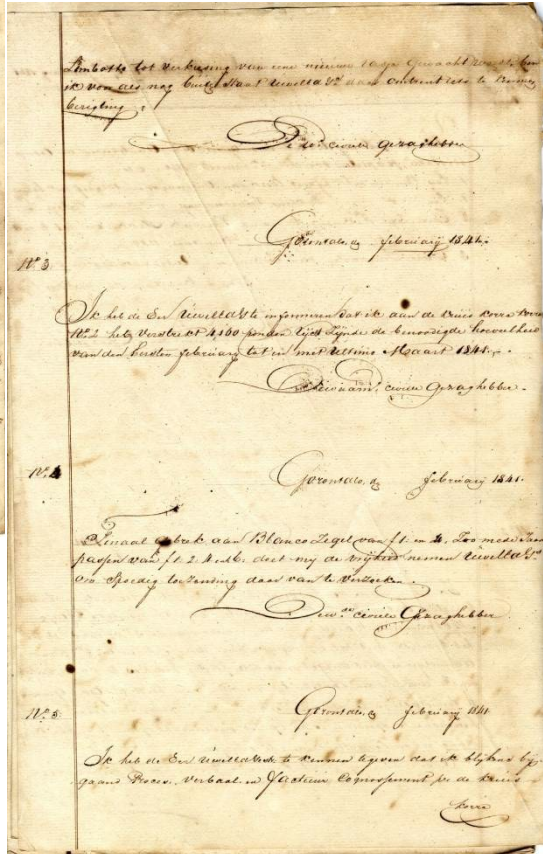 Limbotho tot verkiesing van eene nieuwe
ik van als nog buiten staat UwelEd. daar omtrent iets te kunnen
berigten.
De wd. civiele Gezaghebber
Gorontalo, den februarij 1841.
No. 3
Ik heb de Eer UwelEd. te informeren dat ik aan de kruis korre korre
No. 2 heb verstrekt 4100 ponden rijst zijnde de benoodigde hoeveelheid
van den Eersten februarij tot en met Ultimo Maart 1841.
civiele Gezaghebber.
No. 4
Gorontalo, den februarij 1841.
gebrek aan Blanco Zegel van f 1: en 2. Zoo mede
passen van f 1: 2. 4 en 6: doet mij de vrijheid nemen UwelEd.
om spoedig toezending daar van te verzoeken.
De wd. civiele Gezaghebber
No. 5
Gorontalo, den februarij 1841
Ik heb de Eer UwelEd. te kennen te geven dat ik blijkens bij-
gaand Proces verbaal en factuur Cognossement pr. de kruis
korre